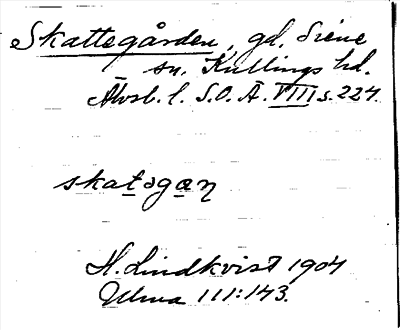 Skattegården, gd, Siene
sn. Kullings hd.
Älvsb. l. S.O.Ä. VIII s. 224.
skatəgaη
H. Lindkvist 1904
Ulma 111:143.